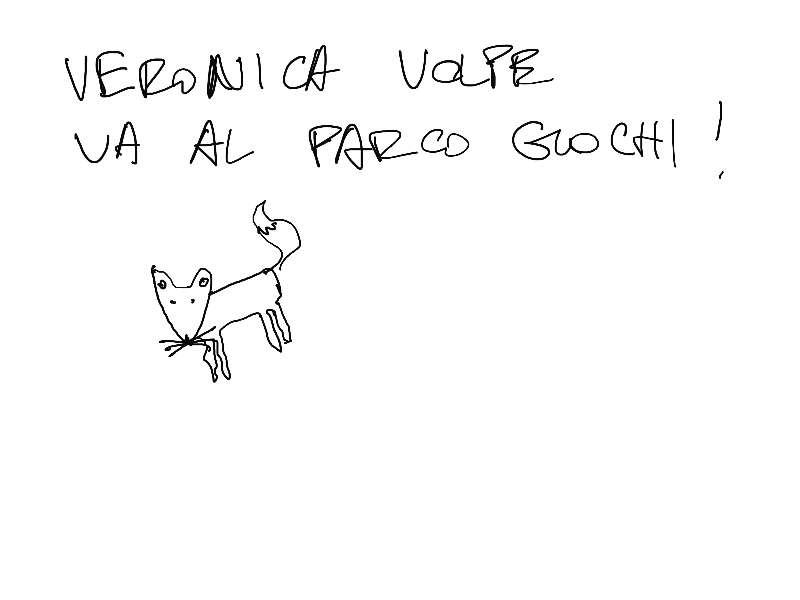 VERONICA VOLPE
VA AL PARCO GIOCHI!